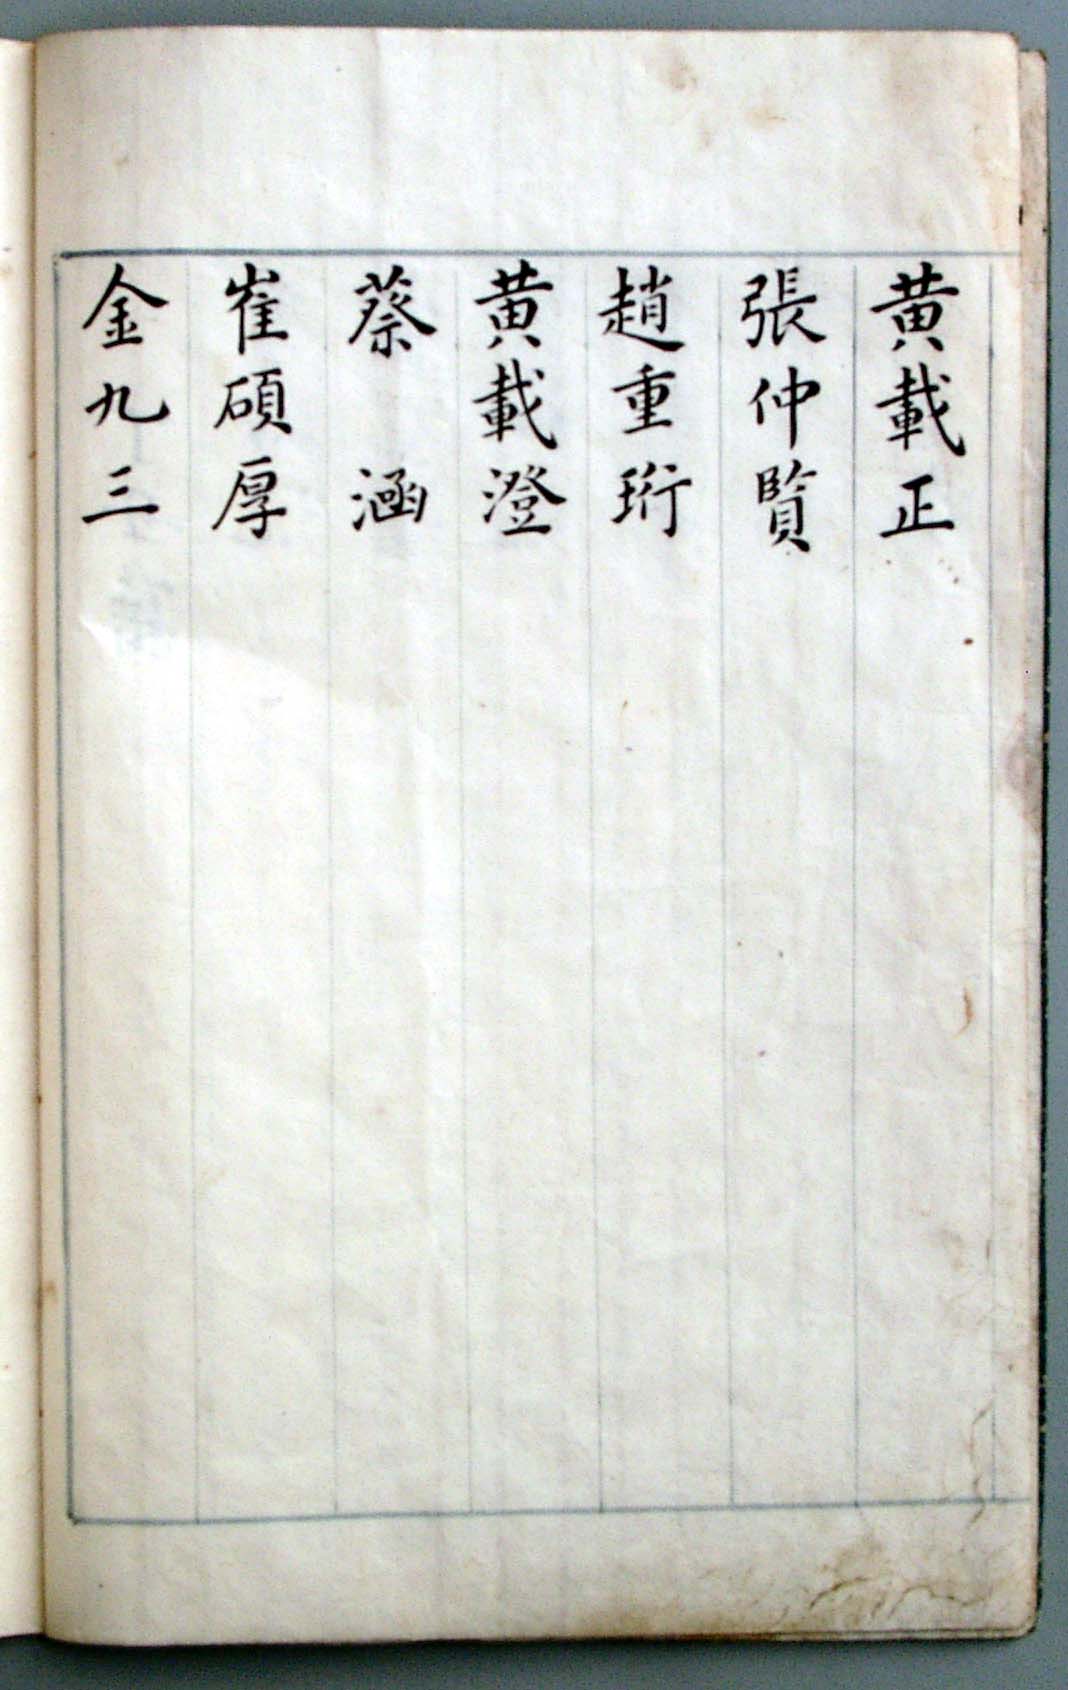 黄載正
張仲賢
趙重珩
黄載澄
蔡涵
崔碩厚
金九三